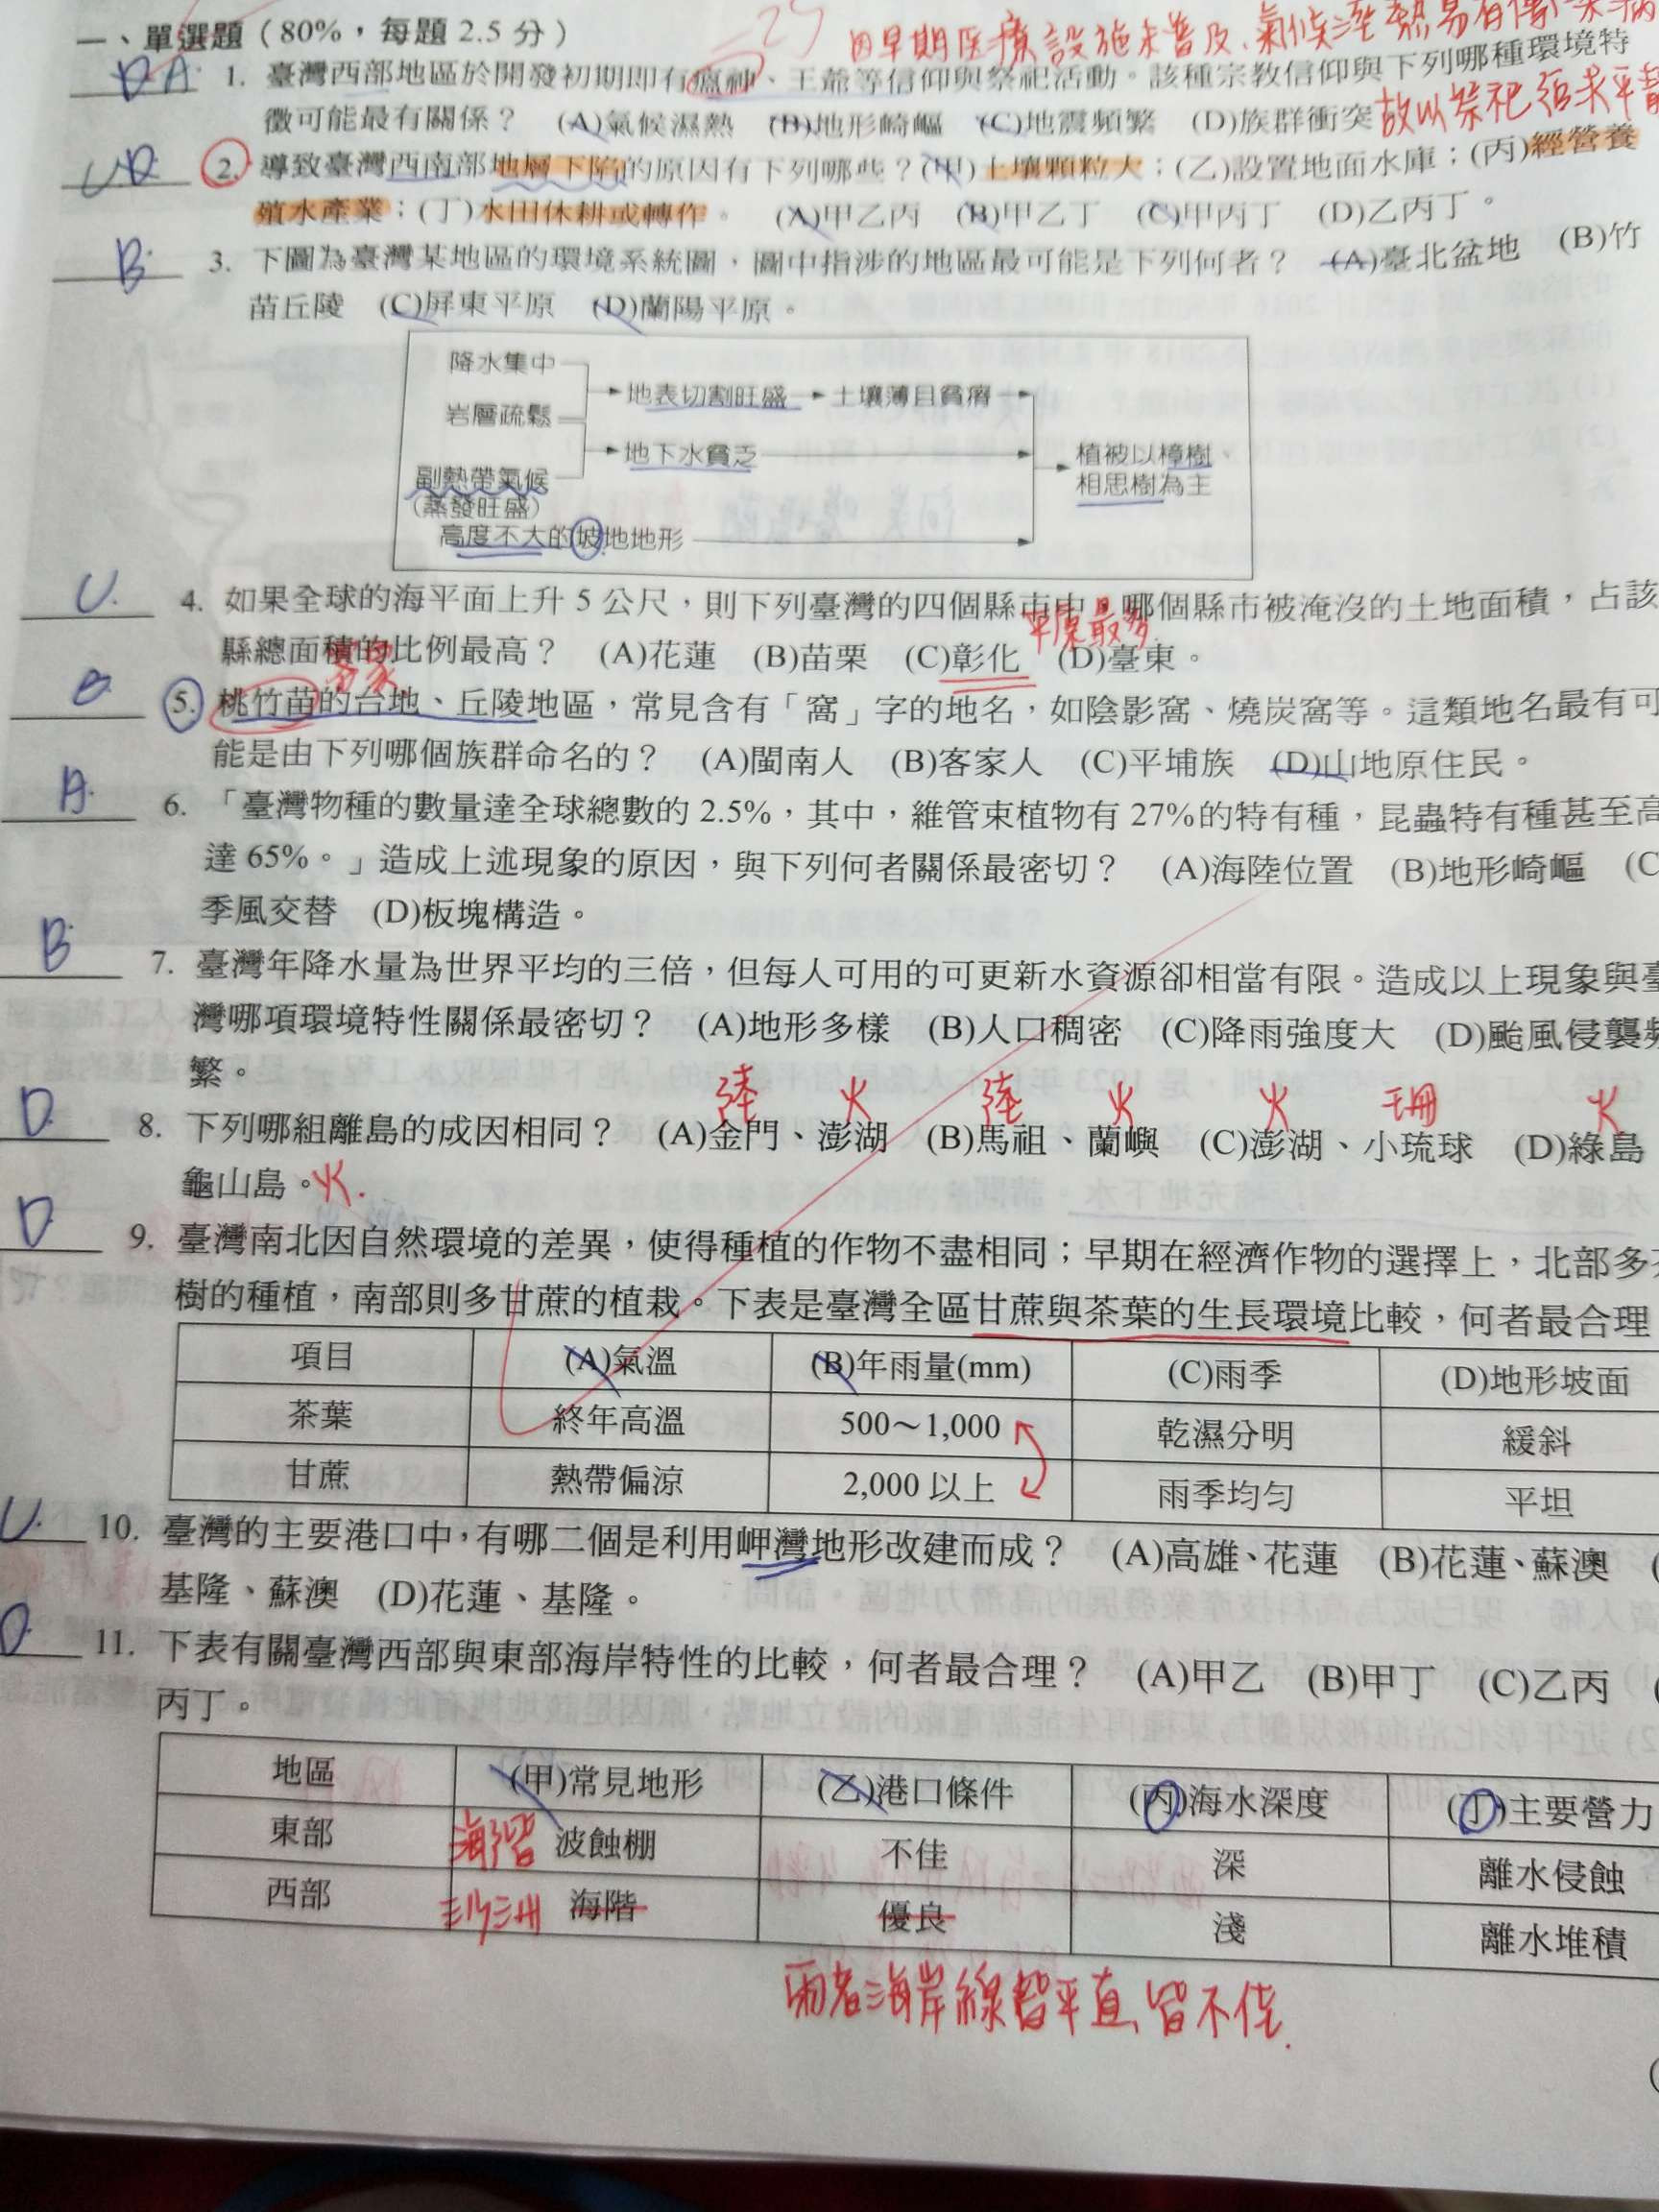 一、單選題（80%，每題 2.5 分）
因早期医療設施未普及、氣候溼熱易有傳染病
故以祭祀祈求平
A 1. 臺灣西部地區於開發初期即有瘟神、王爺等信仰與祭祀活動。該種宗教信仰與下列哪種環境特
徵可能最有關係？ (A)氣候濕熱 (B)地形崎嶇 (C)地震頻繁 (D)族群衝突
D. 2. 導致臺灣西南部地層下陷的原因有下列哪些？(甲)土壤顆粒大；(乙)設置地面水庫；(丙)經營養
殖水產業；(丁)水田休耕或轉作。 (A)甲乙丙 (B)甲乙丁 (C)甲丙丁 (D)乙丙丁。
B. 3. 下圖為臺灣某地區的環境系統圖，圖中指涉的地區最可能是下列何者？ (A)臺北盆地 (B)竹
苗丘陵 (C)屏東平原 (D)蘭陽平原。
降水集中
岩層疏鬆
副熱帶氣候
(蒸發旺盛)
高度不大的坡地地形
地表切割旺盛 土壤薄且貧瘠
地下水貧乏
植被以樟樹、
相思樹為主
C. 4. 如果全球的海平面上升 5 公尺，則下列臺灣的四個縣市中，哪個縣市被淹沒的土地面積，占該
平原最多
縣總面積的比例最高？ (A)花蓮 (B)苗栗 (C)彰化 (D)臺東。
客家
5. 桃竹苗的台地、丘陵地區，常見含有「窩」字的地名，如陰影窩、燒炭窩等。這類地名最有可
能是由下列哪個族群命名的？ (A)閩南人 (B)客家人 (C)平埔族 (D)山地原住民。
A. 6. 「臺灣物種的數量達全球總數的 2.5%，其中，維管束植物有 27%的特有種，昆蟲特有種甚至高
達 65%。」造成上述現象的原因，與下列何者關係最密切？ (A)海陸位置 (B)地形崎嶇 (C
季風交替 (D)板塊構造。
B 7. 臺灣年降水量為世界平均的三倍，但每人可用的可更新水資源卻相當有限。造成以上現象與臺
灣哪項環境特性關係最密切？ (A)地形多樣 (B)人口稠密 (C)降雨強度大 (D)颱風侵襲頻
繁。
陸 火 陸 火 火 珊 火
D. 8. 下列哪組離島的成因相同？ (A)金門、澎湖 (B)馬祖、蘭嶼 (C)澎湖、小琉球 (D)綠島
龜山島。火.
D 9. 臺灣南北因自然環境的差異，使得種植的作物不盡相同；早期在經濟作物的選擇上，北部多茶
樹的種植，南部則多甘蔗的植栽。下表是臺灣全區甘蔗與茶葉的生長環境比較，何者最合理
項目 (A)氣溫 (B)年雨量(mm) (C)雨季 (D)地形坡面
茶葉 終年高溫 500～1,000 乾濕分明 緩斜
甘蔗 熱帶偏涼 2,000 以上 雨季均勻 平坦
C. 10. 臺灣的主要港口中，有哪二個是利用岬灣地形改建而成？ (A)高雄、花蓮 (B)花蓮、蘇澳 (
基隆、蘇澳 (D)花蓮、基隆。
D. 11. 下表有關臺灣西部與東部海岸特性的比較，何者最合理？ (A)甲乙 (B)甲丁 (C)乙丙 (
丙丁。
地區 (甲)常見地形 (乙)港口條件 (丙)海水深度 (丁)主要營力
東部 海階 波蝕棚 不佳 深 離水侵蝕
西部 沙洲 海階 優良 淺 離水堆積
兩者海岸線皆平直、皆不佳.